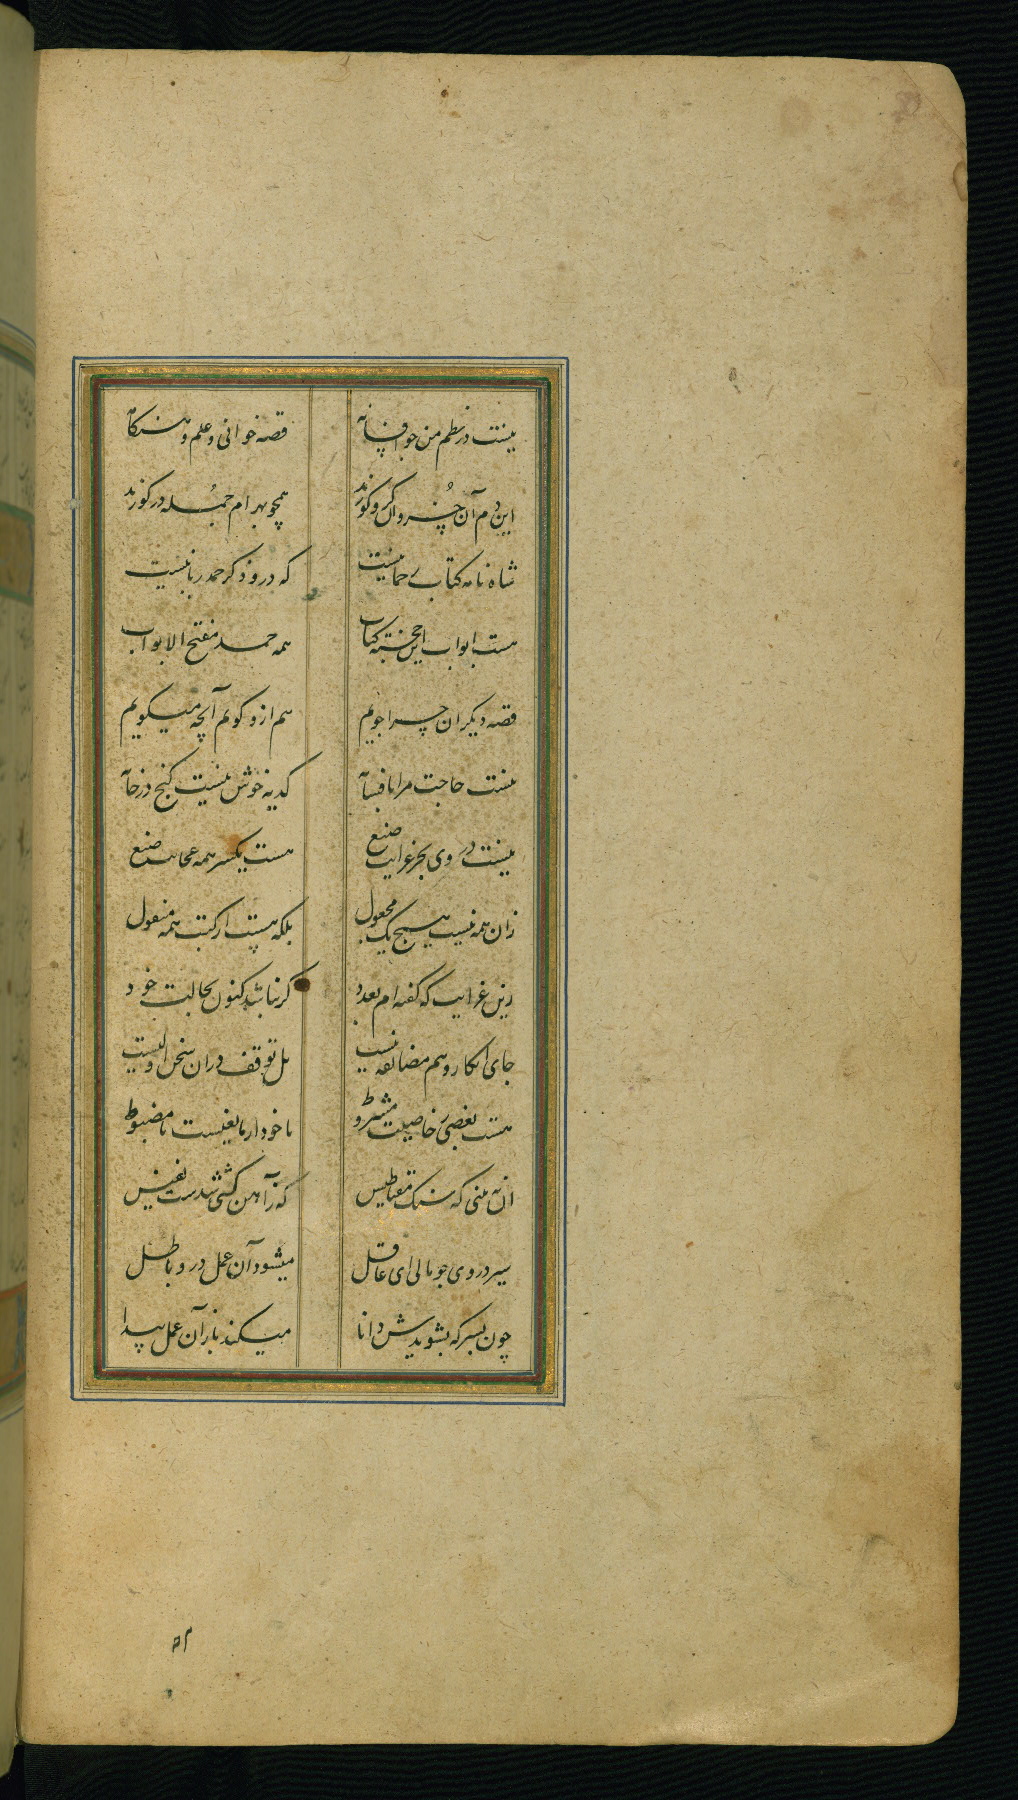 نیست در نظم من جز افسانه قصه خوانی و علم و
این دم آن خسروان کر و کورند همچو بهرام جمله در کورند
شاه نامه کتاب نیست که درو ذکر حمد ربا نیست
هست ابواب این خجسته کتاب همه حمد مفتح الابواب
قصه دیکران چرا جویم هم ازو کویم آنچه میکویم
نیست حاجت مرا بافسانه کدیه خوش نیست کنج در خانه
نیست در وی بجز غرایب صنع هست یکسر همه عجایب صنع
زان همه نیست هیچ یک مجعول بلکه هست از کتب همه منقول
زین غرایب که کفته ام بعدد کر نباشد کنون بحالت خود
جای انکار و هم مضایقه نیست بل توقف دران سخن اولیست
هست بعضی خاصیت مشروط با خود ار مانعیست نا مضبوط
آن نه بینی که سنک مقناطیس که زآهن کشی شدست نفیس
سیر در وی چو مالی ای عاقل میشود آن عمل درو باطل
چون بسرکه بشویدش دانا میکند باز آن عمل پیدا